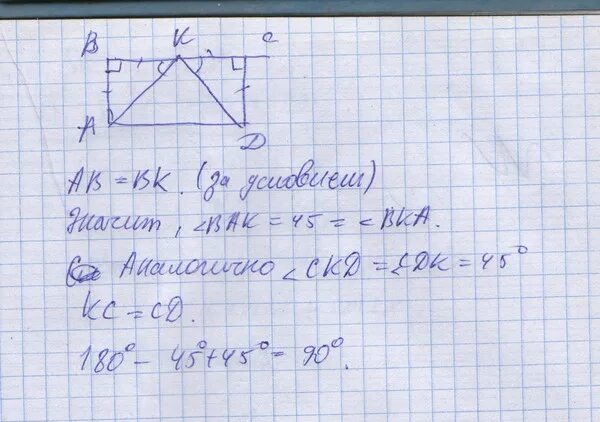 B K C
A D
AB = BK. (за условием)
Значит, ∠BAK = 45 = ∠BKA.
Аналогично ∠CKD = ∠CDK = 45°
KC = CD.
180° - 45° + 45° = 90°.